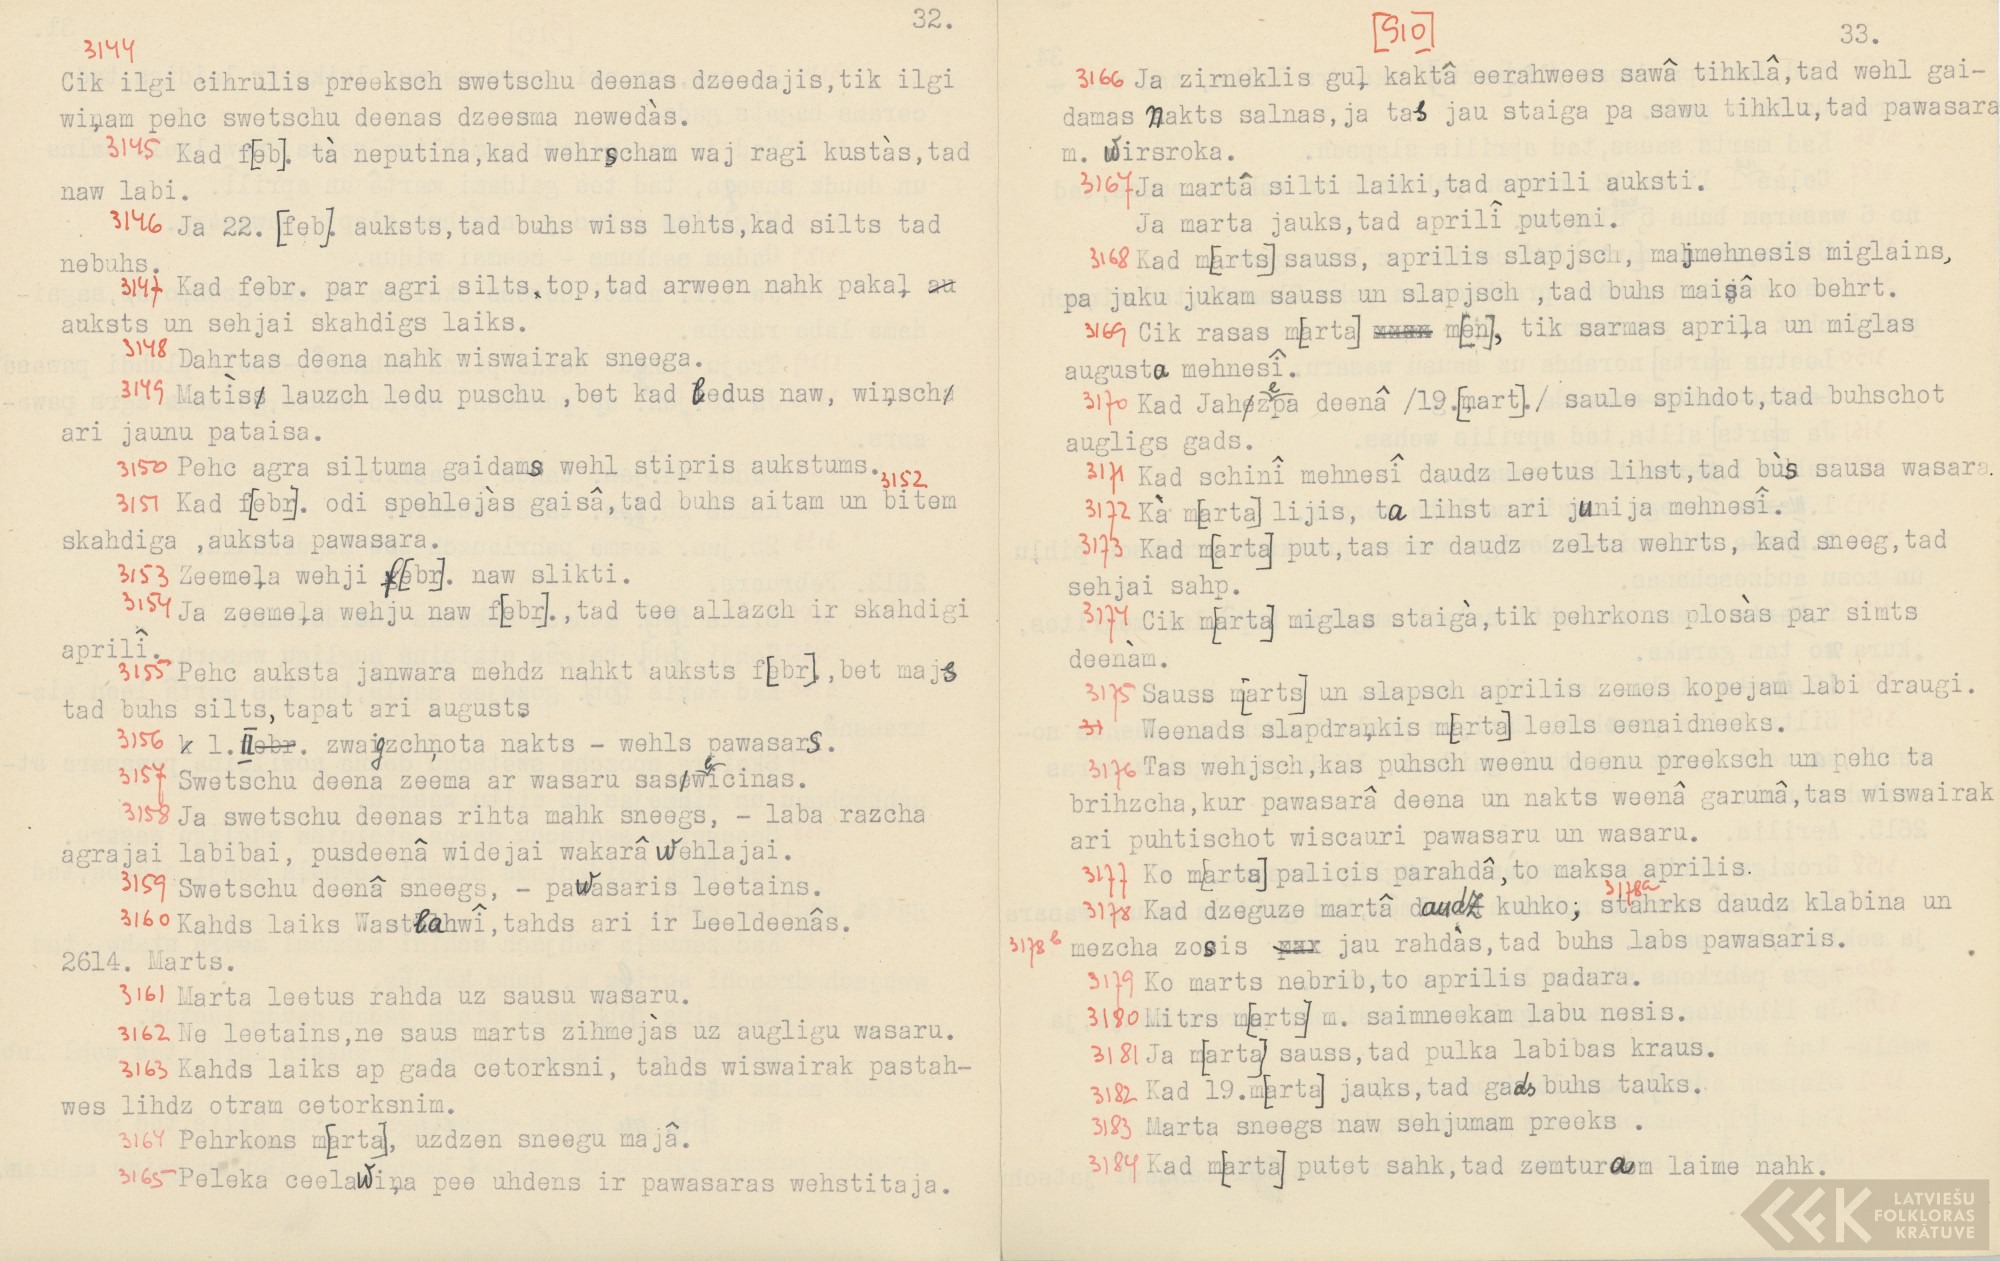 32.
3144
Cik ilgi cihrulis preeksch swetschu deenas dzeedajis,tik ilgi
wiņam pehc swetschu deenas dzeesma newedàs.
3145 Kad f[eb]. tà neputina,kad wehrscham waj ragi kustàs,tad
naw labi.
3146 Ja 22. [feb]. auksts,tad buhs wiss lehts,kad silts tad
nebuhs.
3147 Kad febr. par agri silts,top,tad arween nahk pakaļ au
auksts un sehjai skahdigs laiks.
3148 Dahrtas deena nahk wiswairak sneega.
3149 Matìss lauzch ledu puschu ,bet kad ledus naw, wiņsch
ari jaunu pataisa.
3150 Pehc agra siltuma gaidams wehl stipris aukstums.
3152
3151 Kad f[ebr]. odi spehlejàs gaisâ,tad buhs aitam un bitem
skahdiga ,auksta pawasara.
3153 Zeemeļa wehji f[ebr]. naw slikti.
3154 Ja zeemeļa wehju naw f[ebr].,tad tee allazch ir skahdigi
aprilî.
3155 Pehc auksta janwara mehdz nahkt auksts f[ebr].,bet majs
tad buhs silts,tapat ari augusts
3156 k 1.II febr. zwaigzchņota nakts – wehls pawasars.
3157 Swetschu deena zeema ar wasaru sasweicinas.
3158 Ja swetschu deenas rihta mahk sneegs, – laba razcha
agrajai labibai, pusdeenâ widejai wakarâ wehlajai.
3159 Swetschu deenâ sneegs, – pawasaris leetains.
3160 Kahds laiks Wastlahwî,tahds ari ir Leeldeenâs.
2614. Marts.
3161 Marta leetus rahda uz sausu wasaru.
3162 Ne leetains,ne saus marts zihmejàs uz augligu wasaru.
3163 Kahds laiks ap gada cetorksni, tahds wiswairak pastah-
wes lihdz otram cetorksnim.
3164 Pehrkons m[arta], uzdzen sneegu majâ.
3165 Peleka ceelawiņa pee uhdens ir pawasaras wehstitaja.
[910]
33.
3166 Ja zirneklis guļ kaktâ eerahwees sawâ tihklâ,tad wehl gai-
damas nakts salnas,ja tas jau staiga pa sawu tihklu,tad pawasara
m. wirsroka.
3167 Ja martâ silti laiki,tad aprili auksti.
Ja marta jauks,tad aprilî puteni.
3168 Kad m[arts] sauss, aprilis slapjsch, majmehnesis miglains,
pa juku jukam sauss un slapjsch ,tad buhs maisâ ko behrt.
3169 Cik rasas m[arta] m[en], tik sarmas apriļa un miglas
augusta mehnesî.
3170 Kad Jahzepa deenâ /19.[mart]./ saule spihdot,tad buhschot
augligs gads.
3171 Kad schinî mehnesî daudz leetus lihst,tad bùs sausa wasara.
3172 Kà m[arta] lijis, ta lihst ari junija mehnesî.
3173 Kad m[arta] put,tas ir daudz zelta wehrts, kad sneeg,tad
sehjai sahp.
3174 Cik m[arta] miglas staigà,tik pehrkons plosàs par simts
deenàm.
3175 Sauss m[arts] un slapsch aprilis zemes kopejam labi draugi.
31 Weenads slapdraņkis m[arta] leels eenaidneeks.
3176 Tas wehjsch,kas puhsch weenu deenu preeksch un pehc ta
brihzcha,kur pawasarâ deena un nakts weenâ garumâ,tas wiswairak
ari puhtischot wiscauri pawasaru un wasaru.
3177 Ko m[arts] palicis parahdâ,to maksa aprilis.
3178a
3178 Kad dzeguze martâ daudz kuhko; stahrks daudz klabina un
3178b mezcha zosis jau rahdàs,tad buhs labs pawasaris.
3179 Ko marts nebrib,to aprilis padara.
3180 Mitrs m[erts] m. saimneekam labu nesis.
3181 Ja m[arta] sauss,tad pulka labibas kraus.
3182 Kad 19.m[arta] jauks,tad gads buhs tauks.
3183 Marta sneegs naw sehjumam preeks .
3184 Kad m[arta] putet sahk,tad zemturam laime nahk.
LATVIEŠU
FOLKLORAS
KRĀTUVE